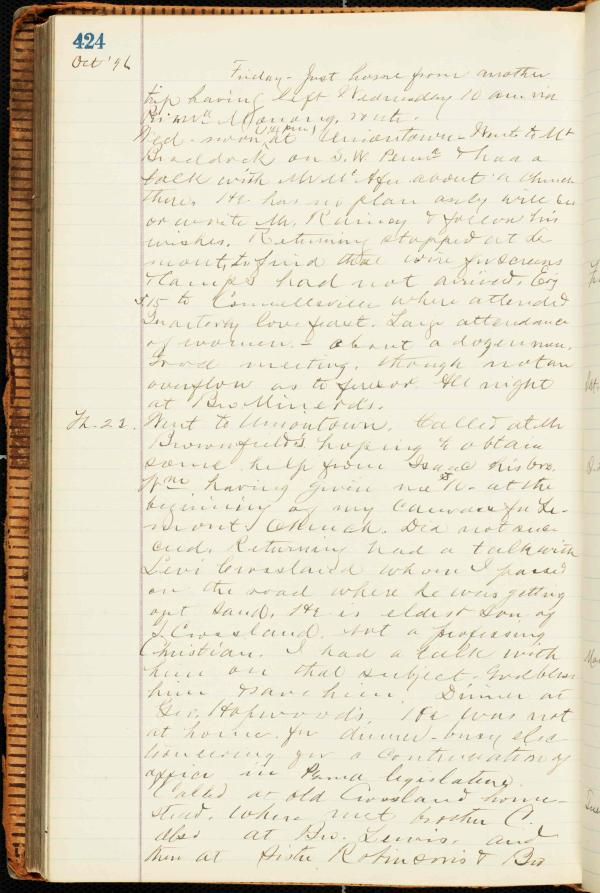 424
Oct '96
Friday - Just home from another
trip having left Wednesday 10 am via
Monong. route.
Wed - noon at Uniontown - Went to Mt
Braddock on S.W. Penna & had a
talk with Mr Mc about a church
there. He has no plan only will
or write Mr. Rainey & follow his
wishes. Returning stopped at Le
mont, to find the wire for screens
& lamps had not arrived. Evg
5.15 to Connellsville where attended
Quarterly love feast. Large attendance
of women. - about a dozen men.
Good meeting, though not an
overflow as to fervor. All night
at Bro Minerds.
Th. 22. Went to Uniontown. Called at Mr
Brownfield's hoping to obtain
some help from Isaac his bro.
Wm having given me at the
beginning of my canvass for Le-
mont Church. Did not suc-
ceed. Returning had a talk with
Levi Crossland whom I passed
on the road where he was getting
out sand. He is eldest son of
Crossland. Not a professing
Christian. I had a talk with
him on that subject. God bless
him & save him. Dinner at
Geo. Hopwood's. He was not
at home for dinner - busy elec
tioneering for a continuation of
office in Penna legislature.
Called at old Crossland home-
stead. where met brother C.
also at Bro. Lewis. and
then at Sister Robinson's & Bro